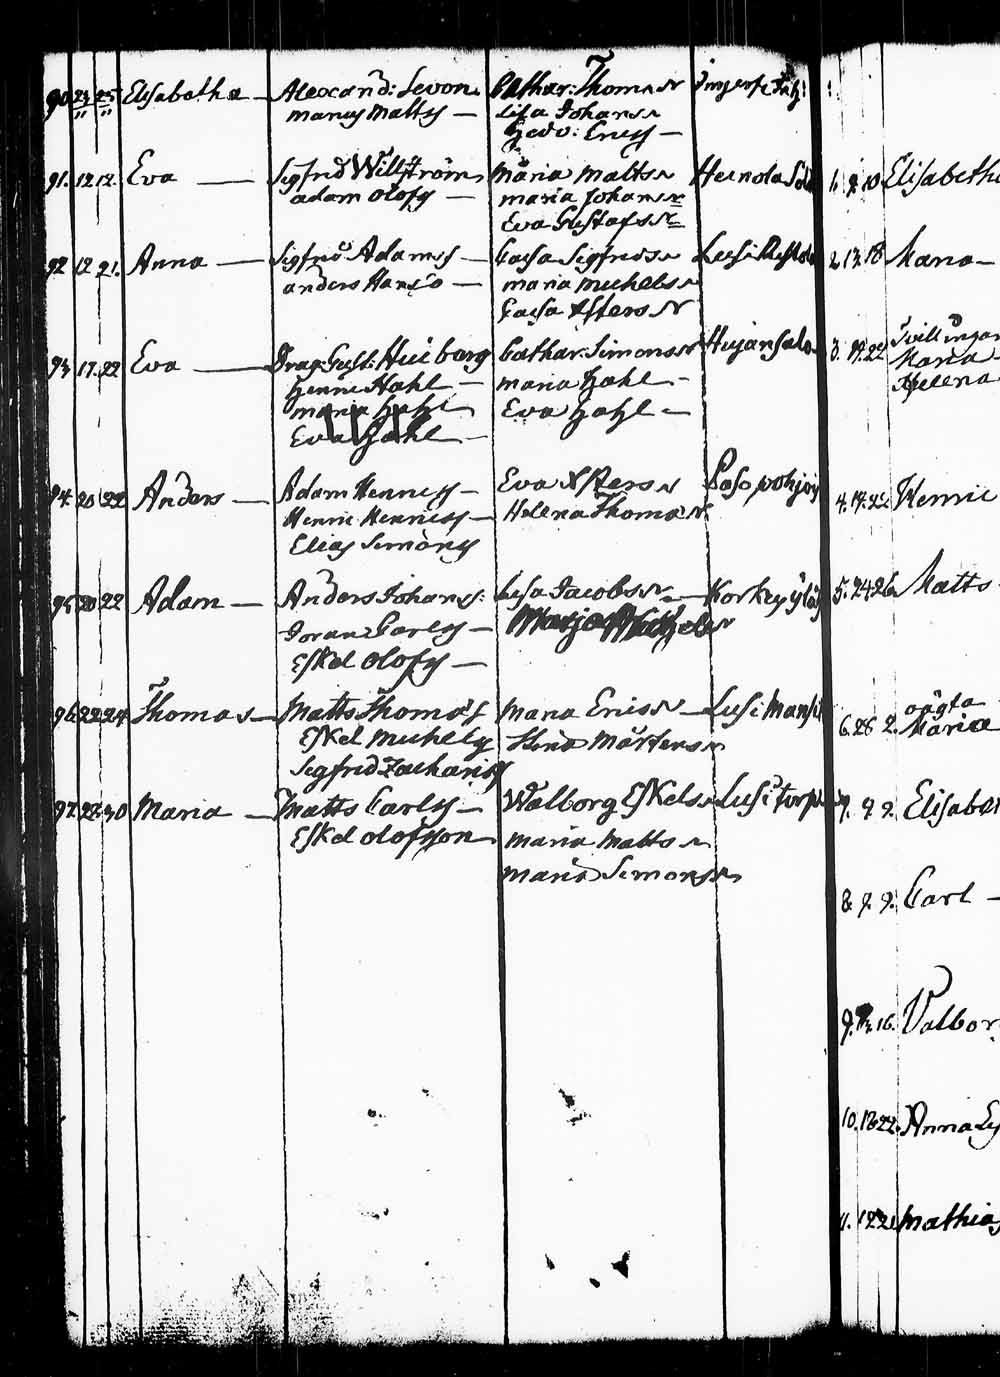 90. 23 25 Elisabetha — Alexand: Levon Cathar: Thomæ
Matts — Lisa Johans
Hedv: Erics —
91. 12 12. Eva — Sigfrid Willström Maria Matts Heinola
Adam Olofs — Maria Johans
Eva Gustafs
92 12 21. Anna — Sigfrid Adams — Caisa Sigfrids Lusi
Anders Hans — Maria Michels
Caisa
93 17. 22 Eva — Drag: Gust: Cathar: Simons Hujansalo
Henric Hahl — Maria Hahl —
Maria Hahl Eva Hahl —
Eva Hahl —
94. 20 22 Anders — Adam Henrics — Eva Paso pohjois
Henric Henrics — Helena Thomæ
Elias Simons
95 20 22 Adam — Anders Johans: Lisa Jacobs — Korkey
Göran Carls — Maria Michels
Eskel Olofs —
96. 22 24 Thomas — Matts Thomas Maria Erics — Lusi
Eskel Michels Stina Mårtens
Sigfrid Zacharias
97. 27. 30 Maria — Matts Carls — Walborg Eskels Lusi torp
Eskel Olofsson Maria Matts
Maria Simons
1. 9. 10 Elisabetha
2. 13. 18 Maria —
3. 19. 22 Tvillingar
Maria
Helena
4. 19. 22 Henric
5. 24 26 Matts
6. 28 2. oägta
Maria
7. 9 9. Elisabet
8. 9. 9. Carl —
9. 16. Valbor
10. 18 22. Anna
11. 12 21 Mathias